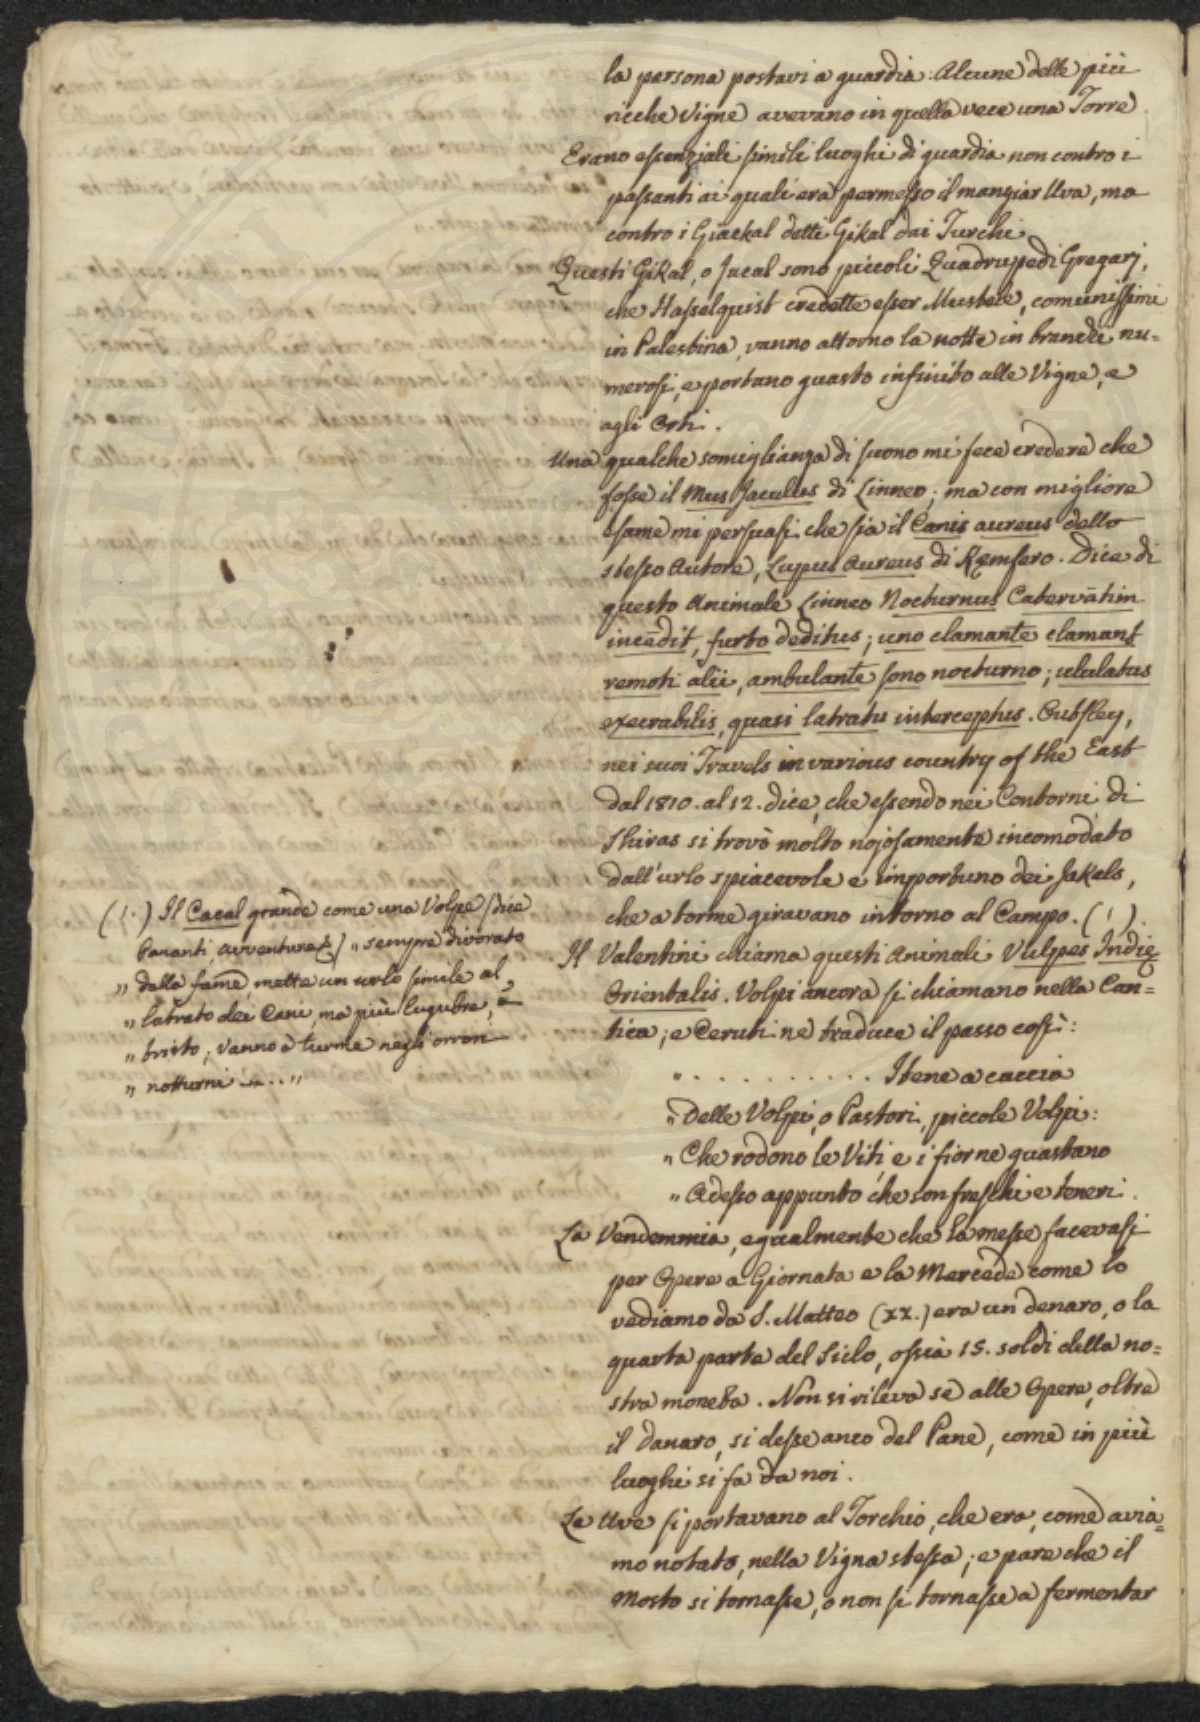 la persona postavi a guardia. Alcune delle più
ricche Vigne avevano in quella vece una Torre.
Erano essenziali simili luoghi di guardia non contro i
passanti ai quali era permesso il mangiar Uva, ma
contro i Giackal detti Gikal dai Turchi.
Questi Gikal, o Jacal sono piccoli Quadrupedi Gregarj,
che Hasselquist credette esser Mustele, comunissimi
in Palestina, vanno attorno la notte in branchi nu-
merosi, e portano guasto infinito alle Vigne, e
agli Orti.
Una qualche somiglianza di suono mi fece credere che
fosse il Mus Jaculus di Linneo; ma con migliore
esame mi persuasi che sia il Canis aureus dello
stesso Autore, Lupus Aureus di Kæmfero. Dice di
questo Animale Linneo Nocturnus Catervātim
incēdit, furto deditus; uno clamante clamant
remoti alii, ambulante sono nocturno; ululatus
execrabilis, quasi latratu interceptus. Outsley,
nei suoi Travels in various country of the East
dal 1810. al 12. dice, che essendo nei Contorni di
Shiras si trovò molto nojosamente incomodato
dall'urlo spiacevole e importuno dei Jakals,
che a torme giravano intorno al Campo. (1)
Il Valentini chiama questi Animali Vulpes Indię
Orientalis. Volpi ancora si chiamano nella Can=
tica; e Ceruti ne traduce il passo così:
" . . . . . . . . . . Itene a caccia
" Delle Volpi, o Pastori, piccole Volpi:
" Che rodono le Viti, e i fior ne guastano
" Adesso appunto che son freschi e teneri.
La Vendemmia, egualmente che la messe facevasi
per Opere a Giornata e la Mercede come lo
vediamo da S. Matteo (XX.) era un denaro, o la
quarta parte del Siclo, ossia 15. soldi della no=
stra moneta. Non si rileva se alle Opere, oltre
il danaro, si desse anco del Pane, come in più
luoghi si fa da noi.
Le Uve si portavano al Torchio, che era, come avia=
mo notato, nella Vigna stessa; e pare che il
Mosto si tornasse, o non si tornasse a fermentar
(1.) Il Cacal grande come una Volpe (dice
Pananti avventure) " sempre divorato
" dalla fame, mette un urlo simile al
" latrato dei Cani, ma più lugubre, e
" tristo; vanno a turme negli orrori
" notturni ..... "